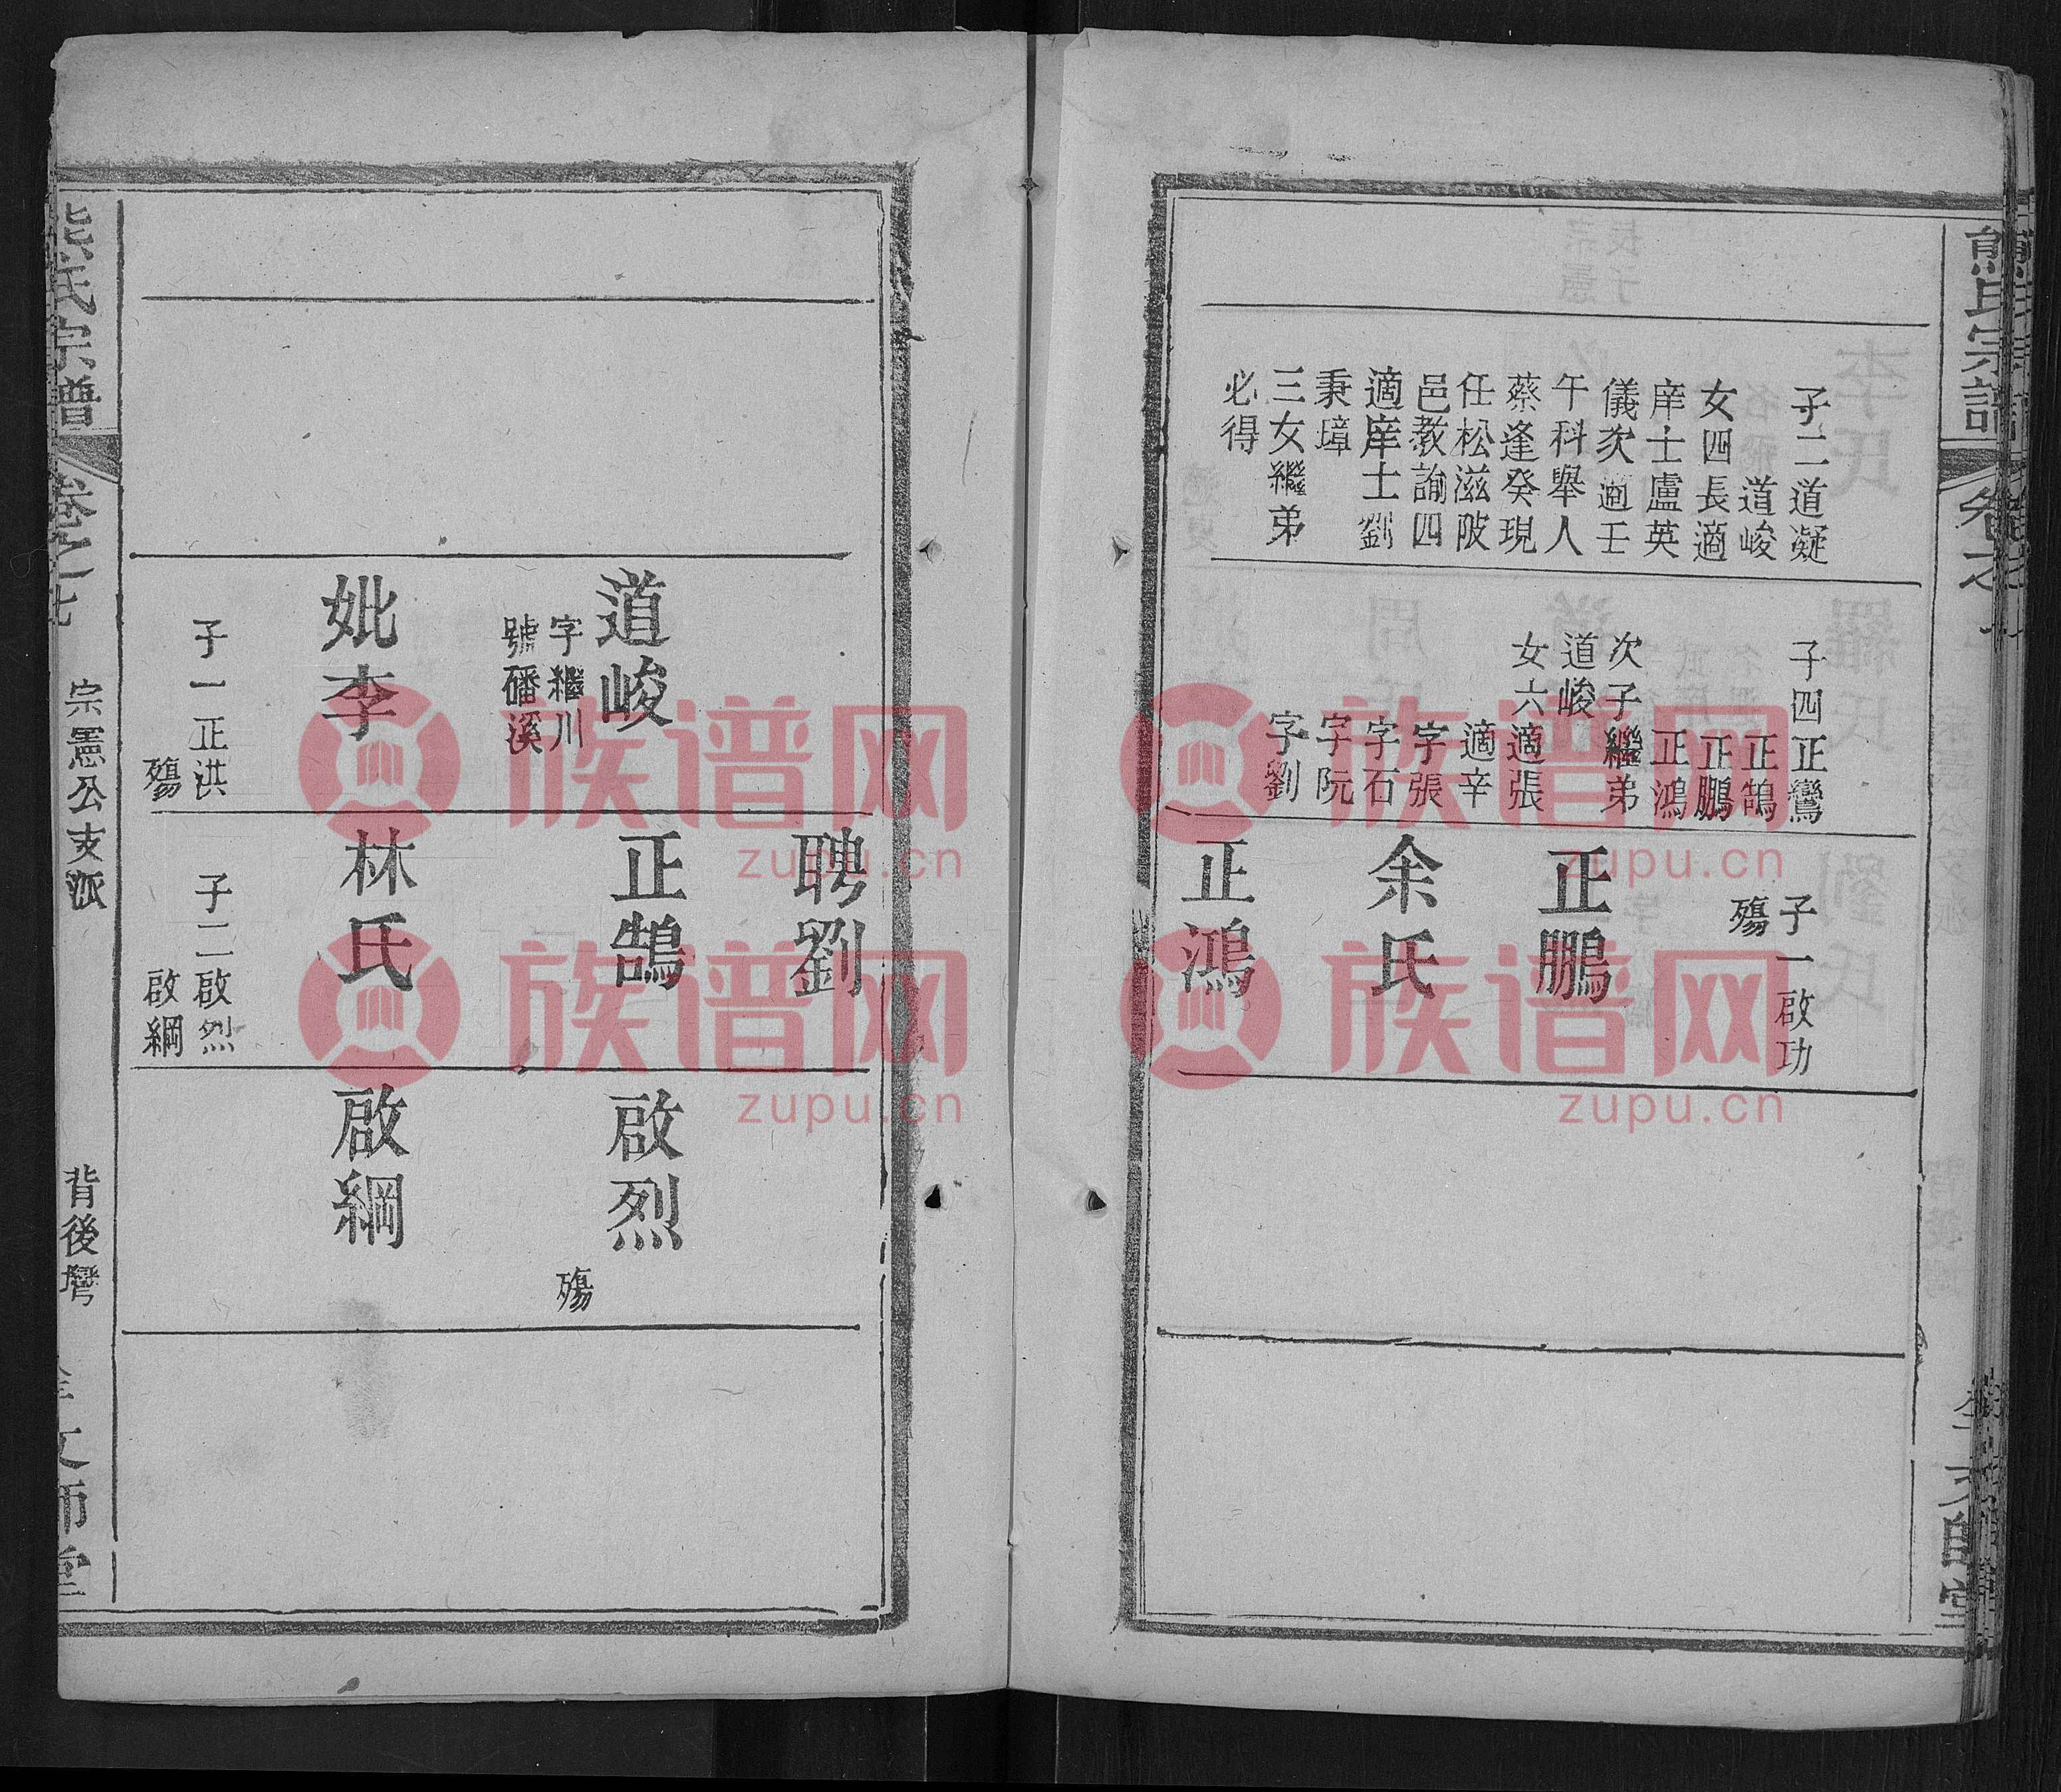 熊氏宗譜
卷之
文師堂
子二道凝
道峻
女四長適
庠士盧英
儀次適壬
午科舉人
蔡逢癸現
任松滋陂
邑教諭四
適庠士劉
秉璋
三女繼弟
必得
子四正鸞
正鵠
正鵬
正鴻
次子繼弟
道峻
女六適張
適辛
字張
字石
字阮
字劉
子一啟功
殤
正鵬
余氏
正鴻
道峻
字繼川
號磻溪
妣李
子一正洪
殤
聘劉
正鵠
林氏
子二啟烈
啟綱
啟烈
殤
啟綱
熊氏宗譜
卷之七
宗憲公支派
背後灣
文師堂
族谱网
zupu.cn
族谱网
zupu.cn
族谱网
zupu.cn
族谱网
zupu.cn